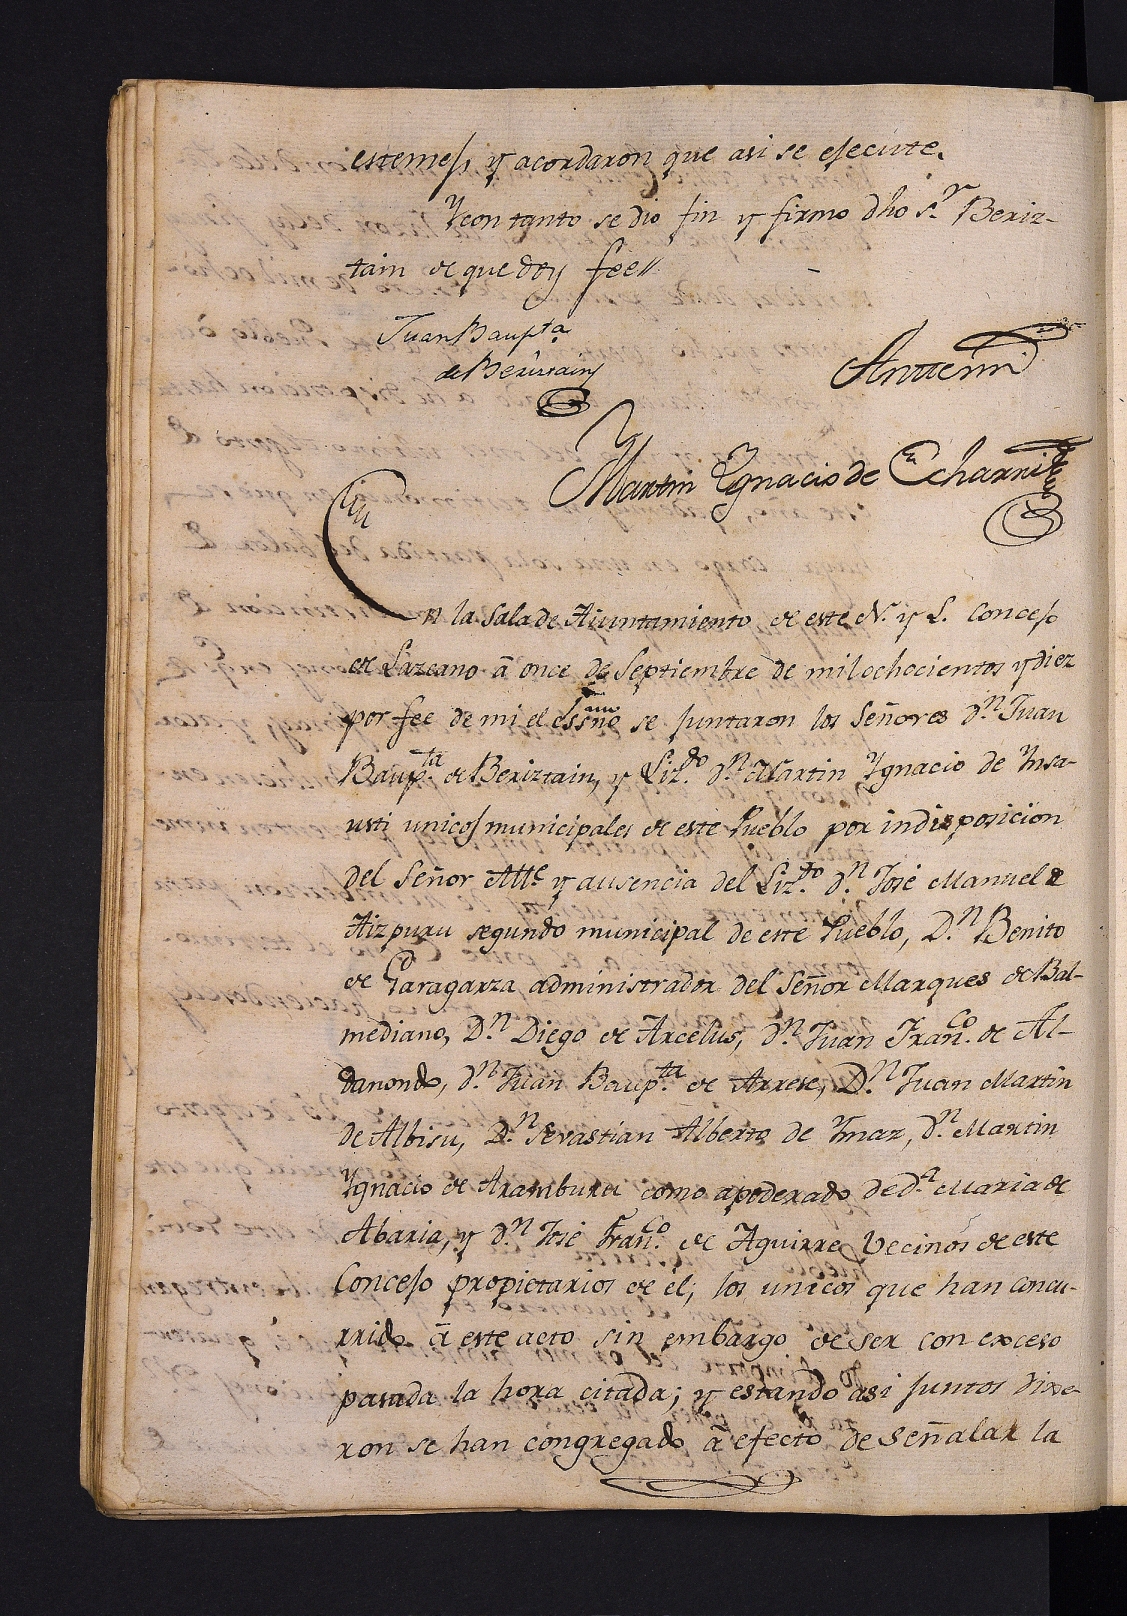 estemes, y acordaron que asi se ejecute.
Ycon tanto se dio fin y firmo dho S.r Beriz-
tain de que doy fee //
Juan Baup.ta
de Beriztain
Antemi
Martin Ygnacio de Echarri
En la Sala de Aiuntamiento de este N. y L. Concejo
de Lazcano â once de Septiembre de mil ochocientos y diez
por fee de mi el Essno se juntaron los Señores d.n Juan
Baup.ta de Beriztain, y Liz.do d.n Martin Ygnacio de Ynsa-
usti unicos municipales de este Pueblo por indisposicion
del Señor Alle y ausencia del Liz.do d.n José Manuel de
Aizpuru segundo municipal de este Pueblo, D.n Benito
de Garagarza administrador del Señor Marques de Bal-
mediano, D.n Diego de Arcelus, d.n Juan Fran.co de Al-
danondo, d.n Juan Baup.ta de Arrese, D.n Juan Martin
de Albisu, D.n Sevastian Alberto de Ymaz, d.n Martin
Ygnacio de Aramburu como apoderado de d.a Maria de
Abaria, y d.n José Fran.co de Aguirre Vecinos de este
Concejo propietarios de él, los unicos que han concu-
rrido â este acto sin embargo de ser con exceso
pasada la hora citada; y estando asi juntos dixe-
ron se han congregado â efecto de señalar la